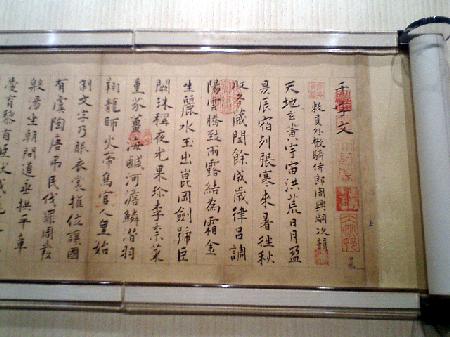 千字文
敕員外散騎侍郎周興嗣次韻
天地玄黃宇宙洪荒日月盈
昃辰宿列張寒來暑往秋
收冬藏閏餘成歲律呂調
陽雲騰致雨露結為霜金
生麗水玉出崑岡劍號巨
闕珠稱夜光果珍李柰菜
重芥薑海鹹河淡鱗潛羽
翔龍師火帝鳥官人皇始
制文字乃服衣裳推位讓國
有虞陶唐弔民伐罪周發
殷湯坐朝問道垂拱平章
愛育黎首臣伏戎